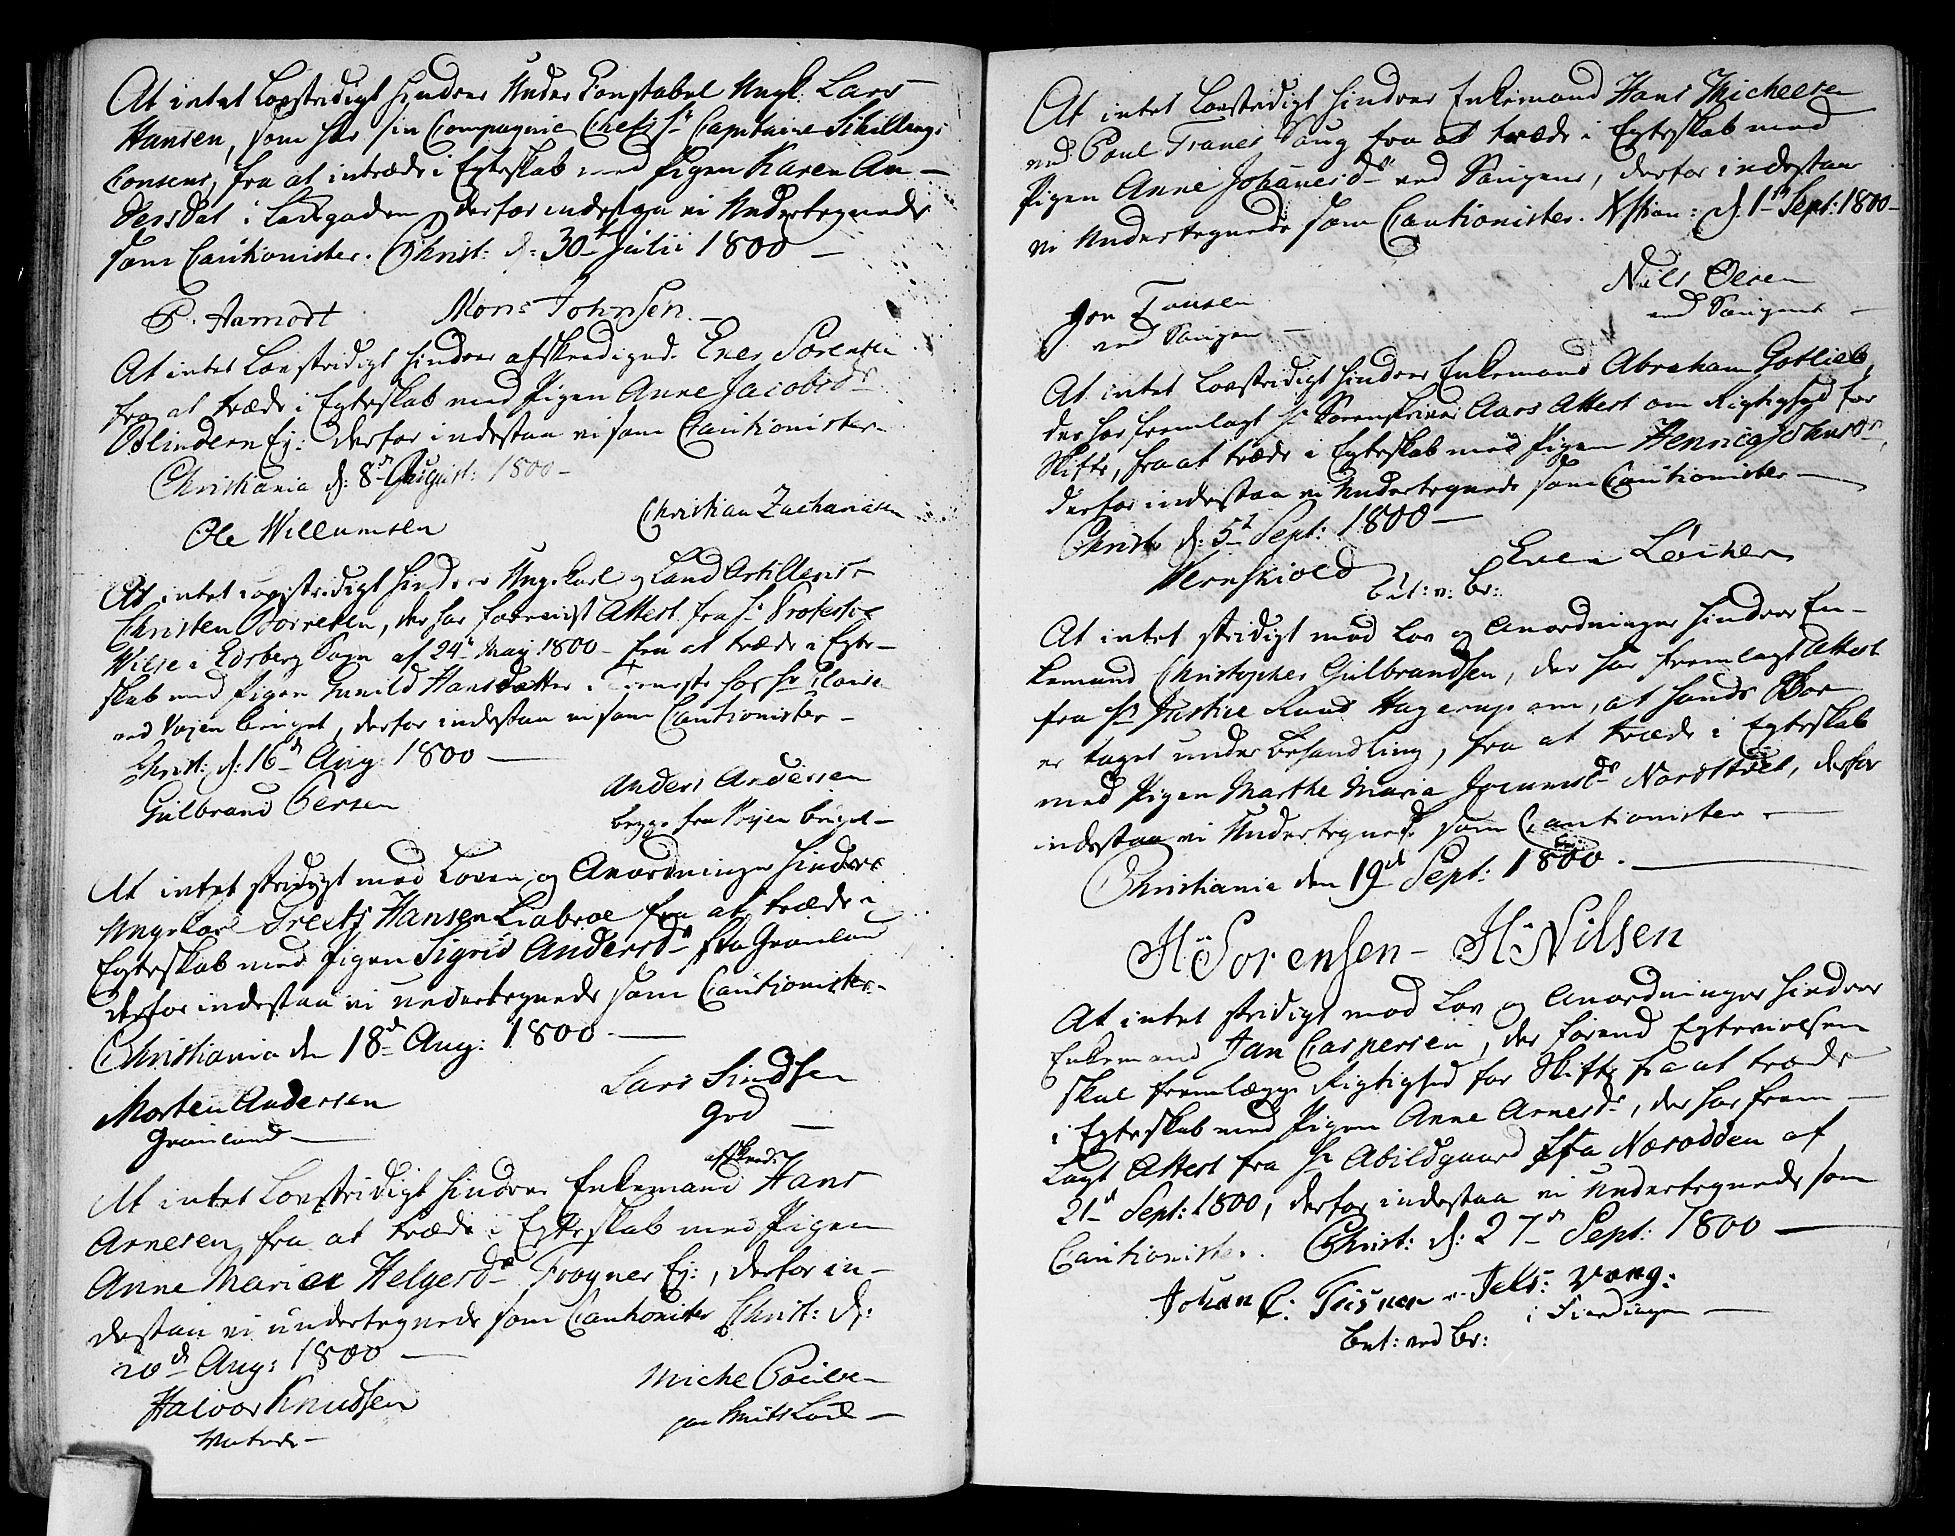 At intet Lovstridigt hindrer Under Constabel Ungk: Lars
Hansen, som har sin Compagnie Chefs Hr Capitaine Schillings
Consens, fra at intræde i Egteskab med Pigen Karen An-
dersdat i Ladegaden derfor indestaa vi Undertegnede
som Cautionister. Christ: d: 30 Julii 1800 —
P. Aamodt Mons Johnsen. —
At intet Lovstridigt hindrer afskeediged Even Sørensen
fra at træde i Egteskab med Pigen Anne Jacobsdr
Blindern Ej: derfor indestaa vi som Cautionister
Christiania d: 8de August: 1800 —
Ole Willumsen Christian Zachariasen
At intet Lovstridigt hindrer Ungekarl og Land Artillerist
Christen Borresen, der har foreviist Attest fra Hr Professor
Wilse i Edsberg Sogn af 24de May 1800 — fra at træde i Egte-
skab med Pigen Gunild Hansdatter i Tieneste hos Hr
ved Vøyen bruget, derfor indestaa vi som Cautionister —
Christ: d: 16de Aug: 1800 —
Gulbrand Persen Anders Andersen
begge fra Vøyen bruget —
At intet stridigt med Loven og Anordninger hindrer
Ungekarl Hansen Liabroe fra at træde i
Egteskab med Pigen Sigrid Andersdr fra Grønland
derfor indestaa vi undertegnede som Cautionister. —
Christiania den 18de Aug: 1800. —
Morten Andersen Lars
Grønland —
afskeed:
At intet Lovstridigt hindrer Enkemand Hans
Arnesen, fra at træde i Egteskab med Pigen
Anne Maria Helgesdr Frogner Ej:, derfor in-
destaa vi undertegnede som Cautionister Christ: d:
20de Aug: 1800 —
Halvor Knudsen
At intet Lovstridigt hindrer Enkemand Hans Micheelsen
ved Poul Tranes Saug fra at træde i Egteskab med
Pigen Anne Johanesdr ved Saugene, derfor indestaa
vi Undertegnede som Cautionister. Xstian: d: 1ste Sept: 1800 —
Niels Olsen
ved Saugene —
ved Saugen —
At intet Lovstridigt hindrer Enkemand Abraham Gotlieb,
der har fremlagt Hr Sorenskriver Aars Attest om Rigtighed for
Skifte, fra at træde i Egteskab med Pigen
derfor indestaa vi Undertegnede som Cautionister —
Christ: d: 5te Sept: 1800 —
Even
At intet stridigt med Lov og Anordninger hindrer En-
kemand Christopher Gulbrandsen, der har fremlagt Attest
fra Hr Justice Raad Hagerup om, at hands Boe
er taget under behandling, fra at træde i Egteskab
med Pigen Marthe Maria Nordstvet, derfor
indestaa vi Undertegnede som Cautionister. —
Christiania den 19de Sept: 1800. —
H: Sorensen — H: Nilsen
At intet stridigt med Lov og Anordninger hindrer
Enkemand Jan Caspersen, der førend Egtevielsen
skal fremlægge Rigtighed for Skifte fra at træde
i Egteskab med Pigen Anne Arnesdr, der har frem-
lagt Attest fra Hr Abildgaard fra Næsodden af
21de Sept: 1800, derfor indestaa vi Undertegnede som
Cautionister. Christ: d: 27de Sept: 1800 —
Johan C: